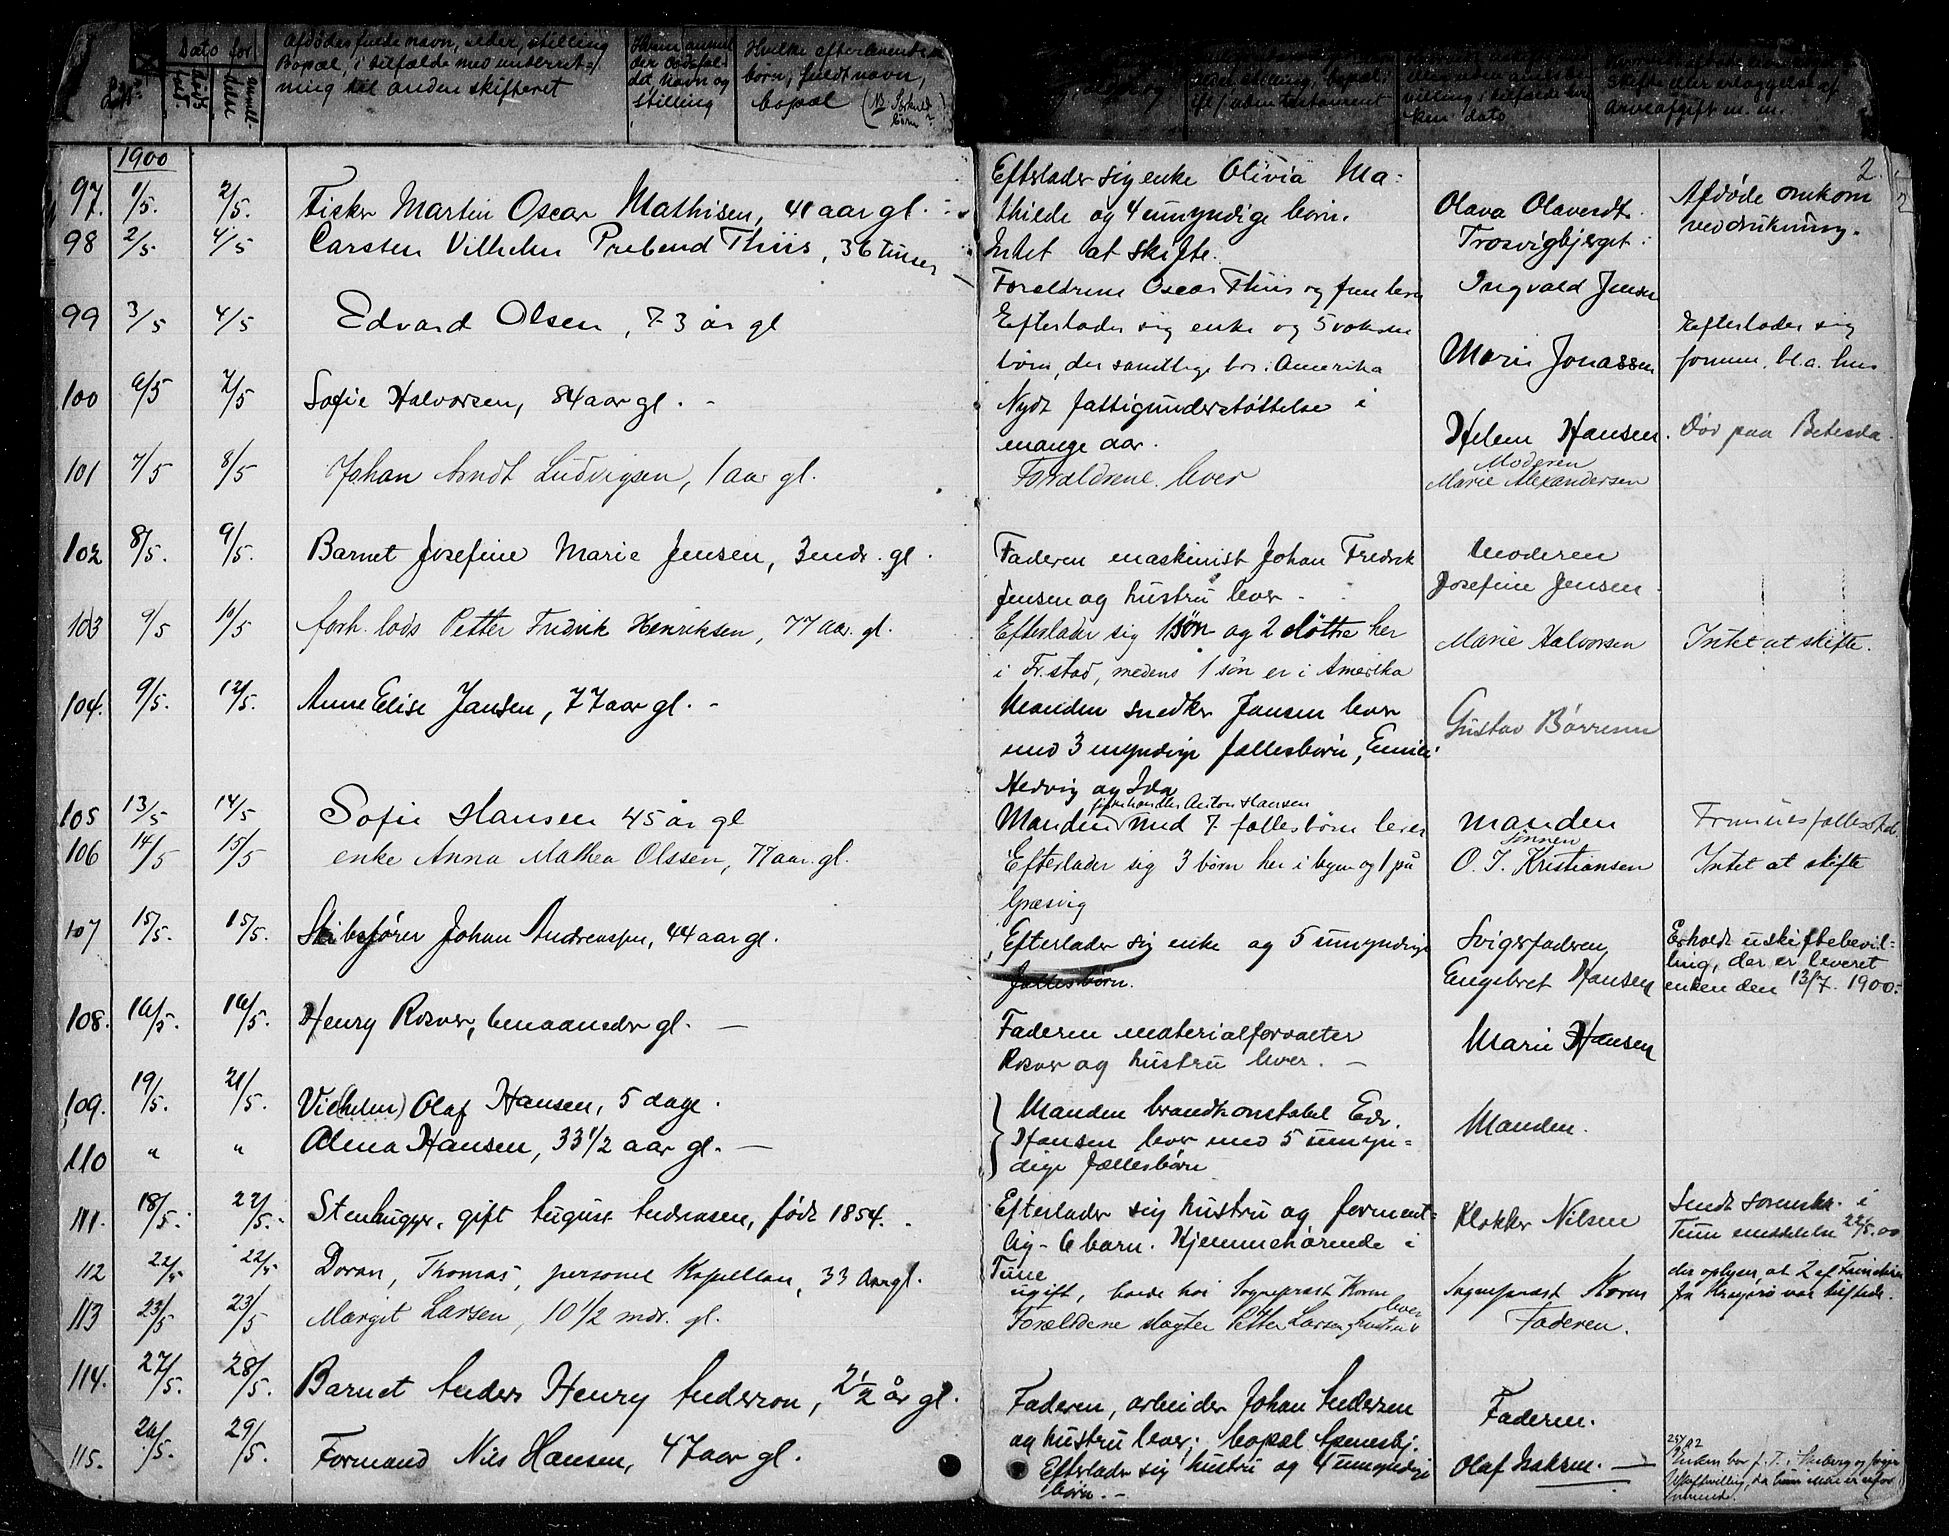 Dato for
Afdødes fulde navn, alder, stilling
Bopæl, i tilfælde med underret-
ning til anden skifteret
døds
delse
det, navn og
stilling
Hvilke efterlevende
børn, fuldt navn,
bopæl
ken dato
Skifte eller erlæggelse af
Arveafgift m. m.
1900
2.
97. 1/5. 2/5. Fisker Martin Oscar Mathisen, 41 aar gl. Efterlader sig enke Olivia Ma-
thilde og 4 umyndige børn. Olava Olavesdt. Afdøde omkom
ved drukning.
98 2/5. 4/5 Carsten Vilhelm Prebend Thiis, 36 timer Intet at skifte. Trosvigbjerget
Forældrene Oscar Thiis og frue lever Ingvald Jensen
99 3/5 4/5 Edvard Olsen, 73 år gl Efterlader sig enke og 5 voksne
børn, der samtlige bor i Amerika Marie Jonassen Efterlader sig
formue, bl.a. hus
100 6/5 7/5 Sofie Halvorsen, 84 aar gl. - Nydt fattigunderstøttelse i
mange aar. Helene Hansen. Død paa Betesda.
101 7/5 8/5 Johan Arndt Ludvigsen, 1 aar gl. Forældrene lever Moderen
Marie Alexandersen
102 8/5. 9/5. Barnet Josefine Marie Jensen, 3 mdr. gl. Faderen maskinist Johan Fredrik
Jensen og hustru lever - Moderen
Josefine Jensen
103 9/5 10/5 forh. lods Petter Fredrik Henriksen, 77 aar. gl. Efterlader sig 1 søn og 2 døttre her
i Fr.stad, medens 1 søn er i Amerika Marie Halvorsen Intet at skifte.
104. 9/5. 12/5. Anne Elise Jansen, 77 aar gl. - Manden snedker Jansen lever
med 3 myndige fællesbørn, Emilie
Hedvig og Ida Gustav Børresen
105 13/5 14/5 Sofie Hansen 45 år gl Anton Hansen
Manden med 7 fællesbørn lever Manden
106 14/5 15/5 enke Anna Mathea Olssen, 77 aar. gl. Efterlader sig 3 børn her i byen og 1 på
Græsvig Sønnen
O. J. Kristiansen Intet at skifte
107 15/5. 15/5. Skibsfører Johan Andreassen, 44 aar gl. Efterlader sig enke og 5 umyndige
fællesbørn. Svigerfaderen,
Engebret Hansen Erholdt uskiftebevil-
ling, der er leveret
enken den 13/7. 1900.
108. 16/5. 16/5. Henry Rosver, 6 maaneder gl. — Faderen materialforvalter
Rosver og hustru lever. — Marie Hansen
109. 19/5. 21/5. Vilhelm Olaf Hansen, 5 dage. Manden brandkonstabel Edv.
Hansen lever med 5 umyn-
dige fællesbørn Manden.
110 " " Alma Hansen, 33 1/2 aar gl. —
111. 18/5. 22/5. Stenhugger, gift August Andreasen, født 1854. Efterlader sig hustru og forment-
lig - 6 barn. Hjemmehørende i
Tune Klokker Nilsen Sendt sorenskr. i
Tune meddelelse 22/5.00
112 22/5 22/5 Doran, Thomas, personel Kapellan, 33 Aar gl. ugift, boede hos Sogneprest Horn Sogneprest Horn
113 23/5 23/5 Margit Larsen, 10 1/2 mdr. gl. Forældrene slagter Petter Larsen hustru lever Faderen.
114. 27/5. 28/5. Barnet Anders Henry Anderson, 2 1/2 år gl. Faderen, arbeider Johan Andersen
og hustru lever; bopæl Apenesbj. Faderen.
115. 26/5. 29/5. Formand Nils Hansen, 47 aar gl. Efterlader sig hustru og 4 umyndige
børn. - Olaf Isaksen. —